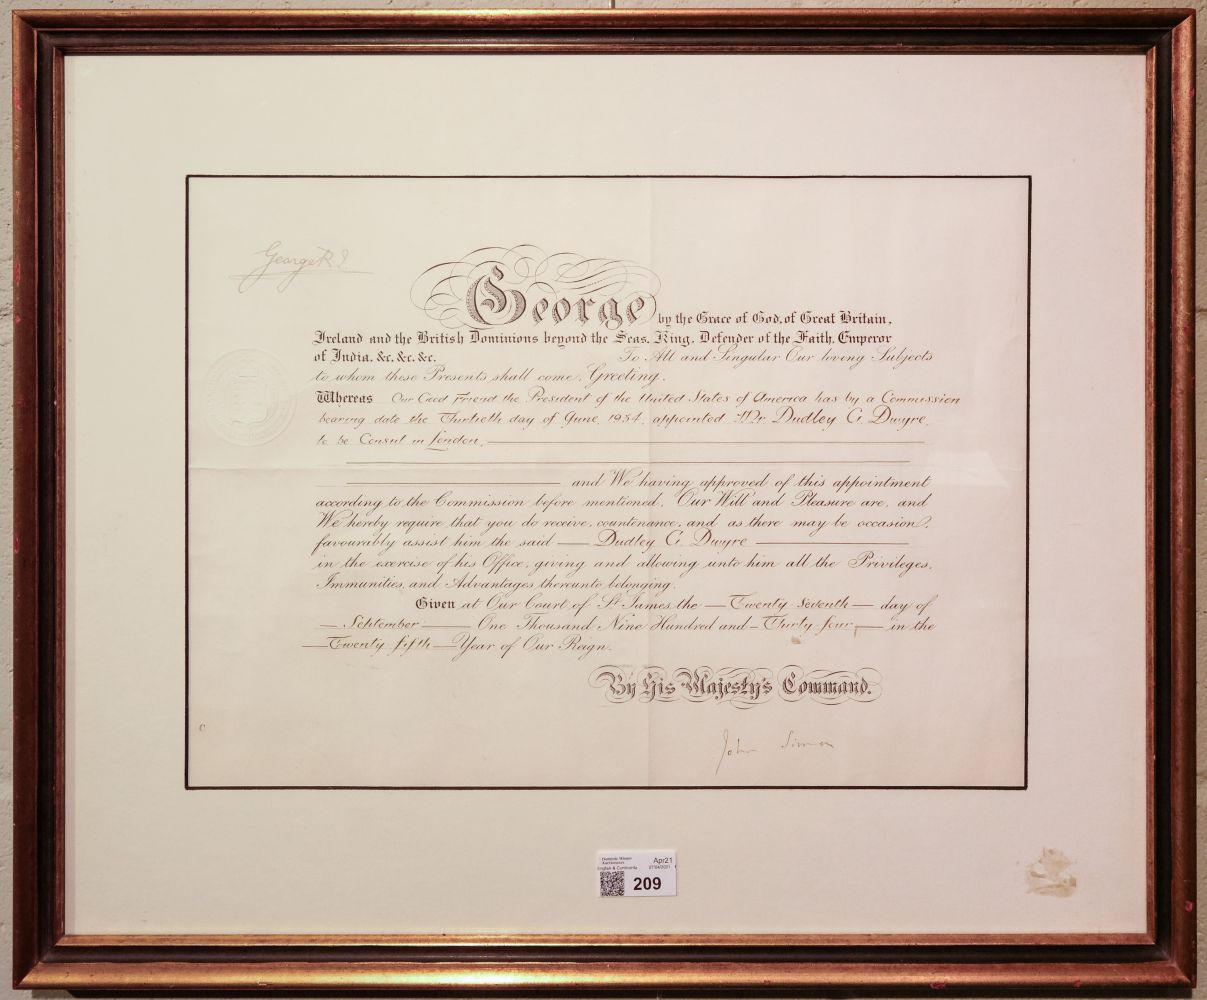 George R I
George by the Grace of God, of Great Britain,
Ireland and the British Dominions beyond the Seas, King, Defender of the Faith, Emperor
of India, &c. &c. &c. To All and Singular Our loving Subjects
to whom these Presents shall come, Greeting.
Whereas Our Good Friend the President of the United States of America has by a Commission
bearing date the Thirtieth day of June, 1934, appointed Mr. Dudley G. Dwyre,
to be Consul in London,
and We having approved of this appointment
according to the Commission before mentioned, Our Will and Pleasure are, and
We hereby require that you do receive, countenance, and as there may be occasion,
favourably assist him the said — Dudley G. Dwyre —
in the exercise of his Office, giving and allowing unto him all the Privileges,
Immunities, and Advantages thereunto belonging.
Given at Our Court of St James, the — Twenty seventh — day of
— September — One Thousand Nine Hundred and — Thirty four, — in the
— Twenty fifth — Year of Our Reign.
By His Majesty's Command.
John Simon
C
Apr21
209